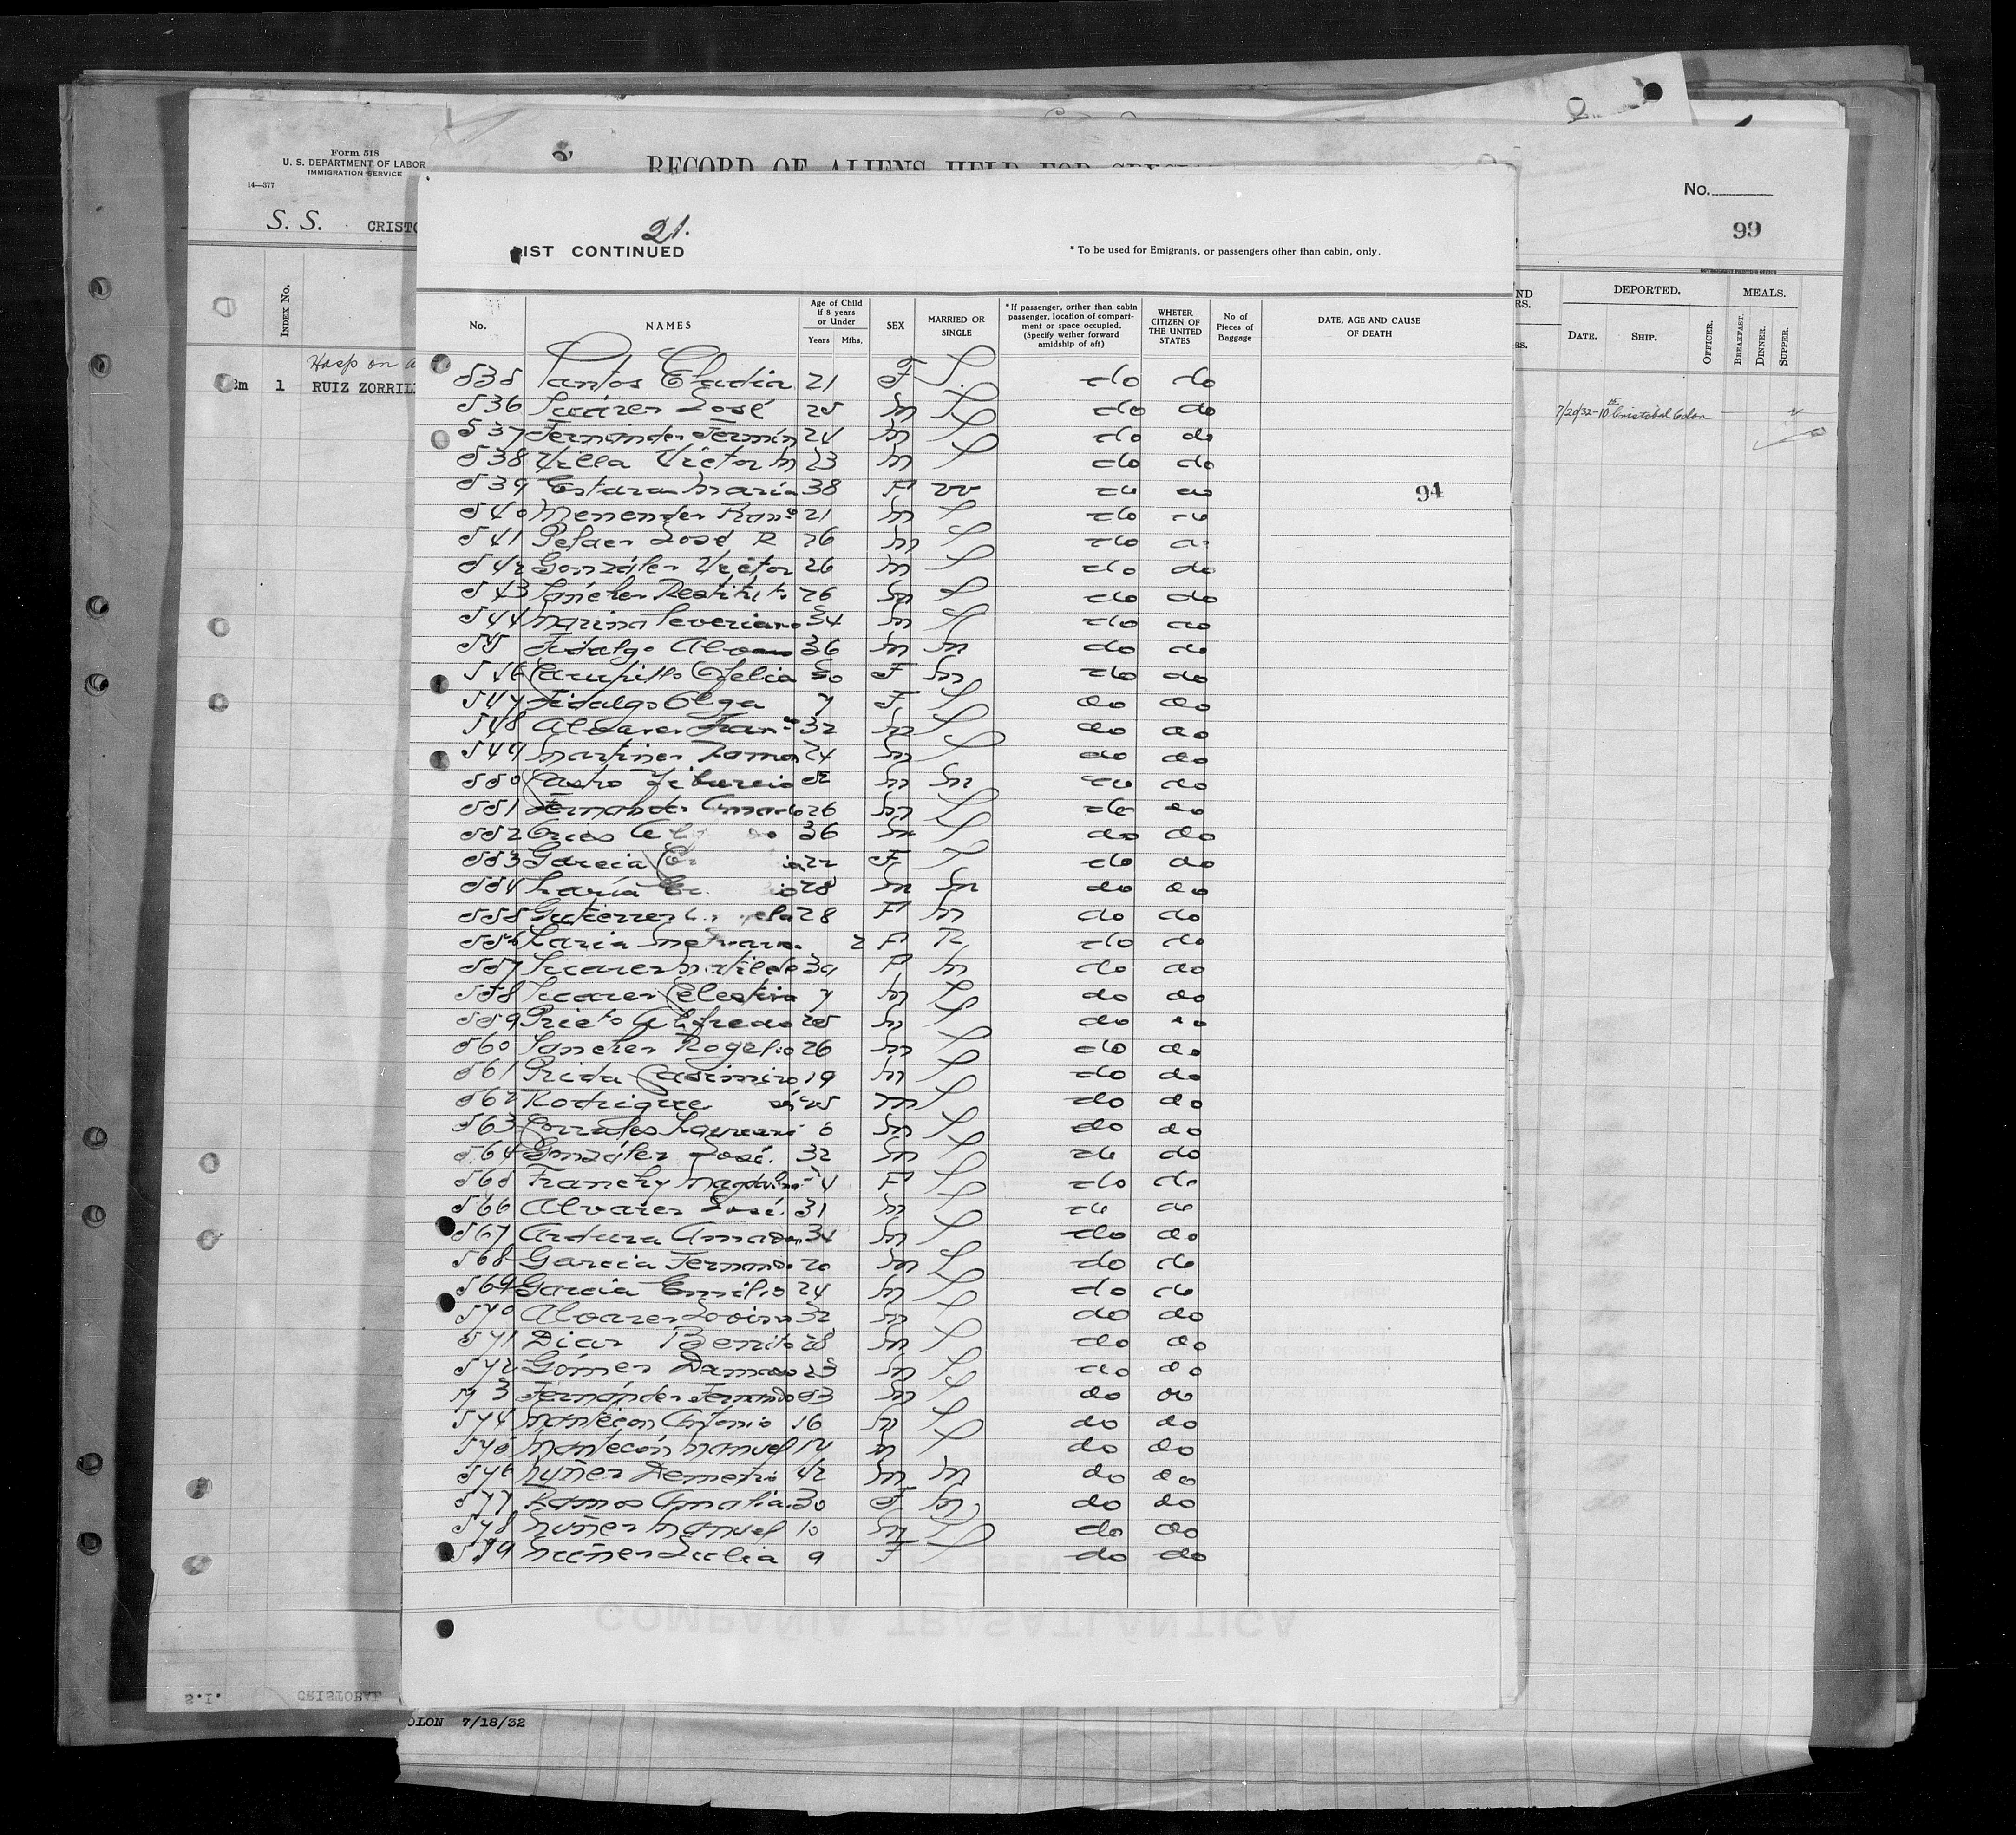 Form 518
U. S. DEPARTMENT OF LABOR
IMMIGRATION SERVICE
14—377
RECORD OF ALIENS HELD FOR
No.
99
S. S. CRISTO
INDEX No.
Hosp on a
1 RUIZ ZORRILL
DEPORTED. MEALS.
DATE. SHIP. OFFICER. BREAKFAST. DINNER. SUPPER.
7/20/32-10 Cristobal Colon
21.
IST CONTINUED
* To be used for Emigrants, or passengers other than cabin, only.
No. NAMES Age of Child if 8 years or Under Years Mths. SEX MARRIED OR SINGLE * If passenger, orther than cabin passenger, location of compartment or space occupied. (Specify wether forward amidship of aft) WHETER CITIZEN OF THE UNITED STATES No of Pieces of Baggage DATE, AGE AND CAUSE OF DEATH
535 Santos Eladia 21 F S. do do
536 Suárez José 25 m S do do
537 Fernández Fermín 24 m S do do
538 Villa Victor M 23 m S do do
539 María 38 F do do
94
540 Menendez 21 m S do do
541 Pelaez José R 26 m S do
542 González Victor 26 m S do do
543 Sánchez 26 m S do do
544 Marina Severiano 34 m S do do
545 Fidalgo 36 m m do do
546 Ofelia F m do do
547 Fidalgo Olga 7 F S do do
548 Alvarez 32 m S do do
549 Martinez Ramon 24 m S do do
550 Castro Tiburcio m m do do
551 Fernandez 26 m S do do
552 36 m S do do
553 Garcia 22 F S do do
554 28 m m do do
555 Gutierrez 28 F m do do
556 2 F do do
557 Suarez Matilde 39 F m do do
558 Suarez Celestino 7 m S do do
559 Prieto Alfredo 25 m S do do
560 Sanchez Rogelio 26 m S do do
561 Prida Casimiro 19 m S do do
562 Rodriguez m S do do
563 Corrales m S do do
564 González José 32 m S do do
565 Franchy F S do do
566 Alvarez José 31 m S do do
567 Ardura Amador 34 m S do do
568 Garcia Fernando 20 m S do do
569 Garcia Emilio 24 m S do do
570 Alvarez 32 m S do do
571 Diaz Benito 28 m S do do
572 Gómez Damaso 23 m S do do
573 Fernández Fernando m S do do
574 Mantecon Antonio 16 m S do do
575 Mantecón Manuel 14 m S do do
576 Nuñez Demetrio 42 m m do do
577 Ramos Amalia 30 F m do do
578 Nuñez Manuel 10 m S do do
579 Nuñez Julia 9 F S do do
COMPAÑIA TRASATLANTICA
S.I. CRISTOBAL
OLON 7/18/32